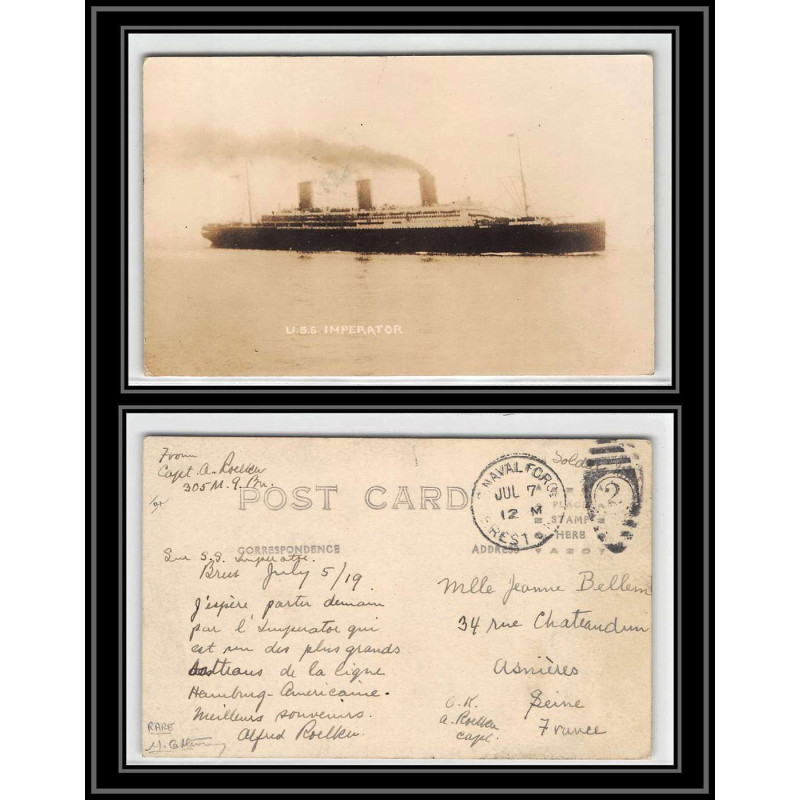 U.S.S. IMPERATOR
From
Capt. A. Roelker
305 M. G. Bn.
POST CARD
NAVAL FORCE
JUL 7
12 M
BREST
2
PLACE
STAMP
HERE
CORRESPONDENCE
ADDRESS
Sur S.S. Imperator.
Brest July 5/19.
J'espère partir demain
par l'Imperator qui
est un des plus grands
bateaux de la ligne
Hamburg-Americaine.
Meilleurs souvenirs.
Alfred Roelker
Mlle Jeanne Bellem
34 rue Chateaudun
Asnières
Seine
France
O.K.
A. Roelker
Capt.
RARE